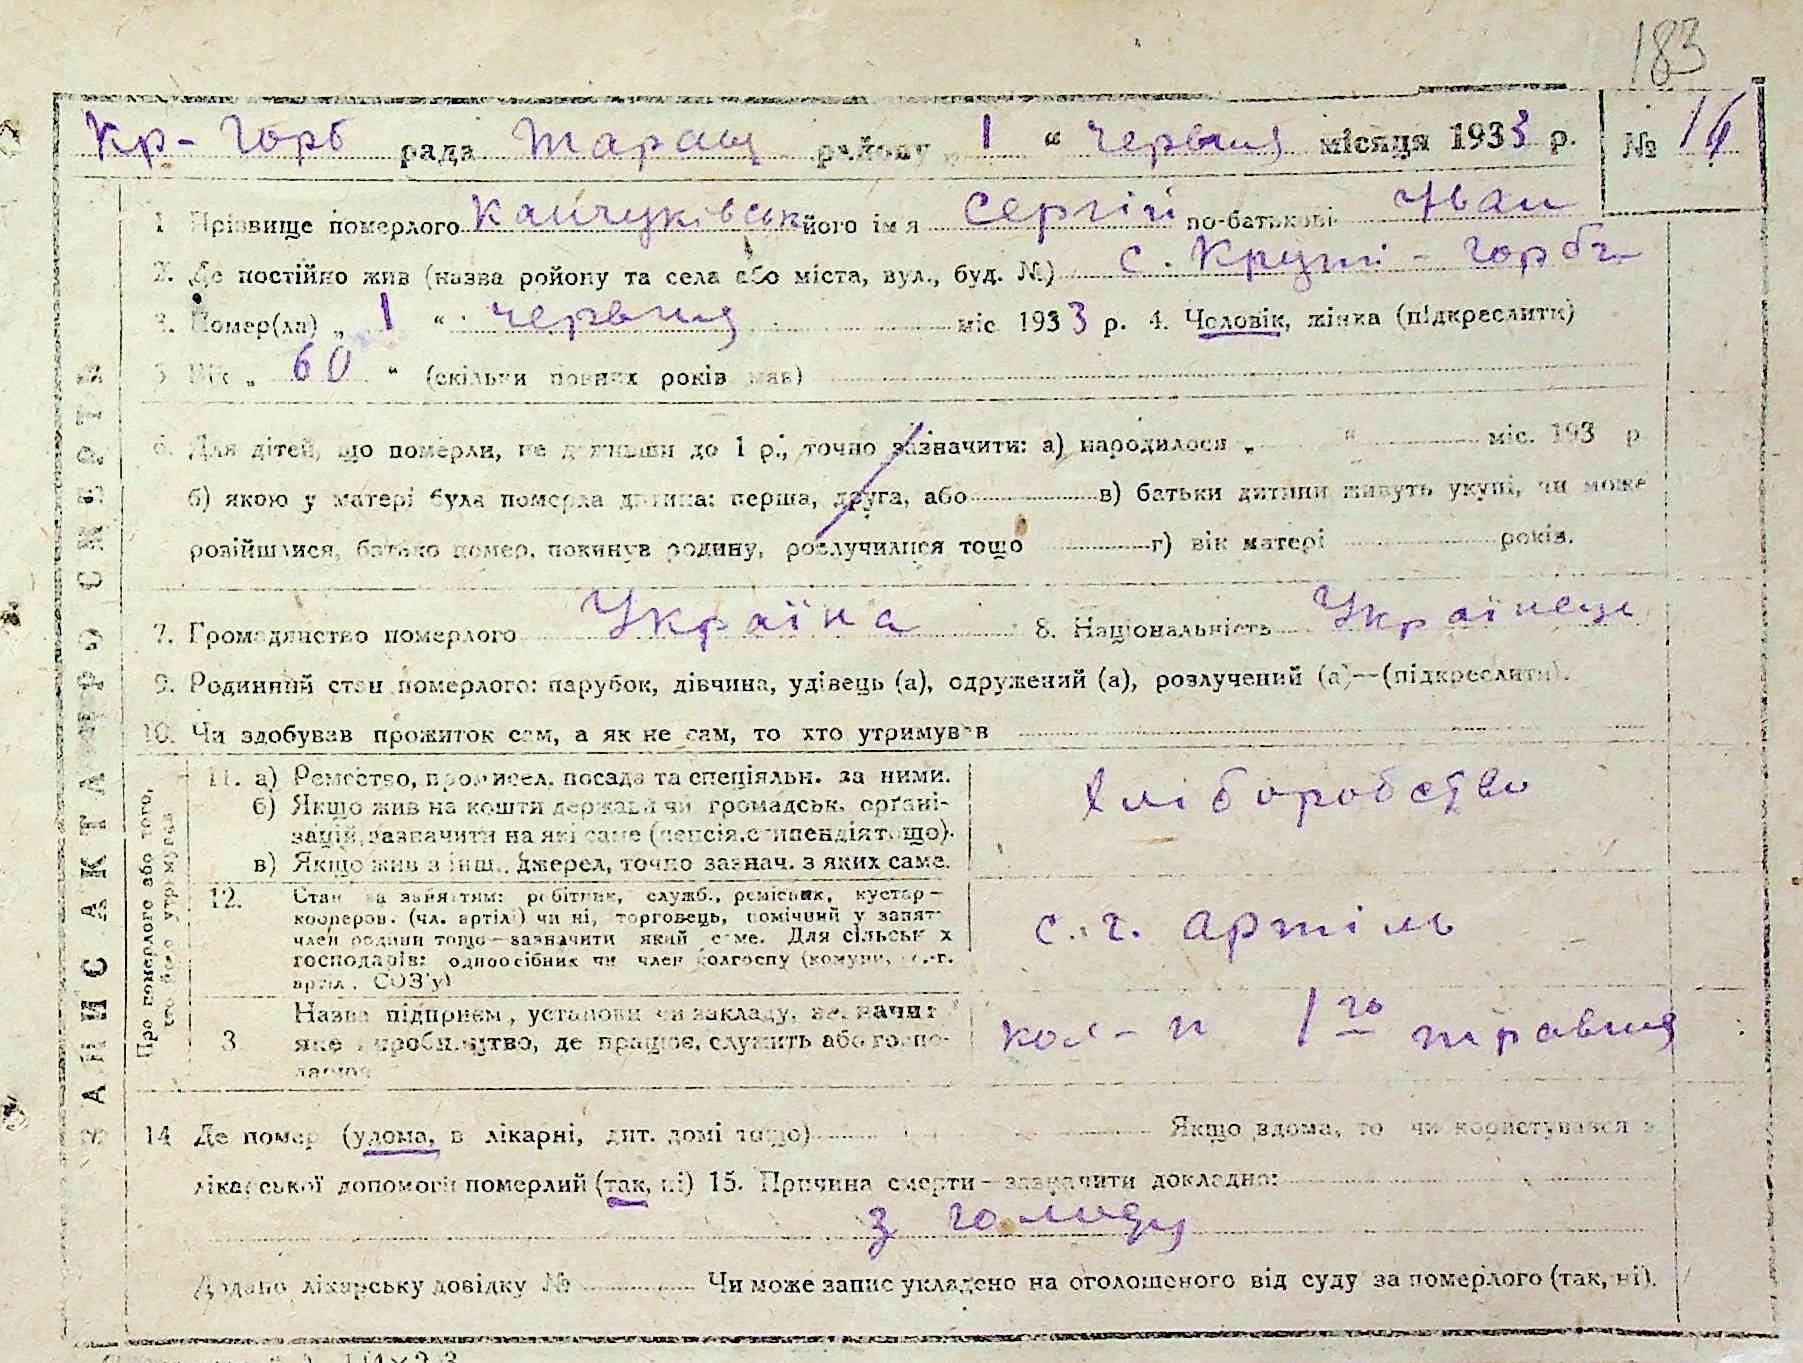 183
Кр-Горб рада Таращ району „ 1 “ червня місяця 1933 р. № 16
1 Прізвище померлого Канчуківськ його ім'я Сергій по-батькові Иван
2. Де постійно жив (назва ройону та села або міста, вул., буд. №) с. Круті-Горби
3. Помер(ла) „ 1 “ червня міс 1933 р. 4. Чоловік, жінка (підкреслити)
5. Вік „ 60 “ (скільки повних років мав)
6. Для дітей, що померли, не доживши до 1 р., точно зазначити: а) народилося „ “ міс. 193 р
б) якою у матері була померла дитина: перша, друга, або в) батьки дитини живуть укупі, чи може
розійшлися, батько помер, покинув родину, розлучилися тощо г) вік матері років.
7. Громадянство померлого Україна 8. Національність Українець
9. Родинний стан померлого: парубок, дівчина, удівець (а), одружений (а), розлучений (а)—(підкреслити).
10. Чи здобував прожиток сам, а як не сам, то хто утримував
ЗАПИС АКТА ПРО СМЕРТЬ
Про померлого або того, хто його утримував
11. а) Ремество, промисел, посада та спеціяльн. за ними.
б) Якщо жив на кошти держави чи громадськ. орґані-
зацій, зазначити на які саме (пенсія, стипендія тощо).
в) Якщо жив з інш. джерел, точно зазнач. з яких саме.
Хліборобство
12. Стан за заняттям: робітник, служб., ремісник, кустар—
кооперов. (чл. артілі) чи ні, торговець, помічний у занят.
член родини тощо—зазначити який саме. Для сільськ х
господарів: одноосібник чи член колгоспу (комуни, с.-г.
артіл. СОЗ'у)
с.г. артіль
3 Назва підприєм., установи чи закладу, зазначит
яке виробництво, де працює, служить або госпо-
дарює
кол-п 1го травня
14 Де помер (удома, в лікарні, дит. домі тощо) Якщо вдома, то чи користувався з
лікарської допомоги померлий (так, ні) 15. Причина смерти—зазначити докладно:
з голоду
Додано лікарську довідку № Чи може запис укладено на оголошеного від суду за померлого (так, ні).